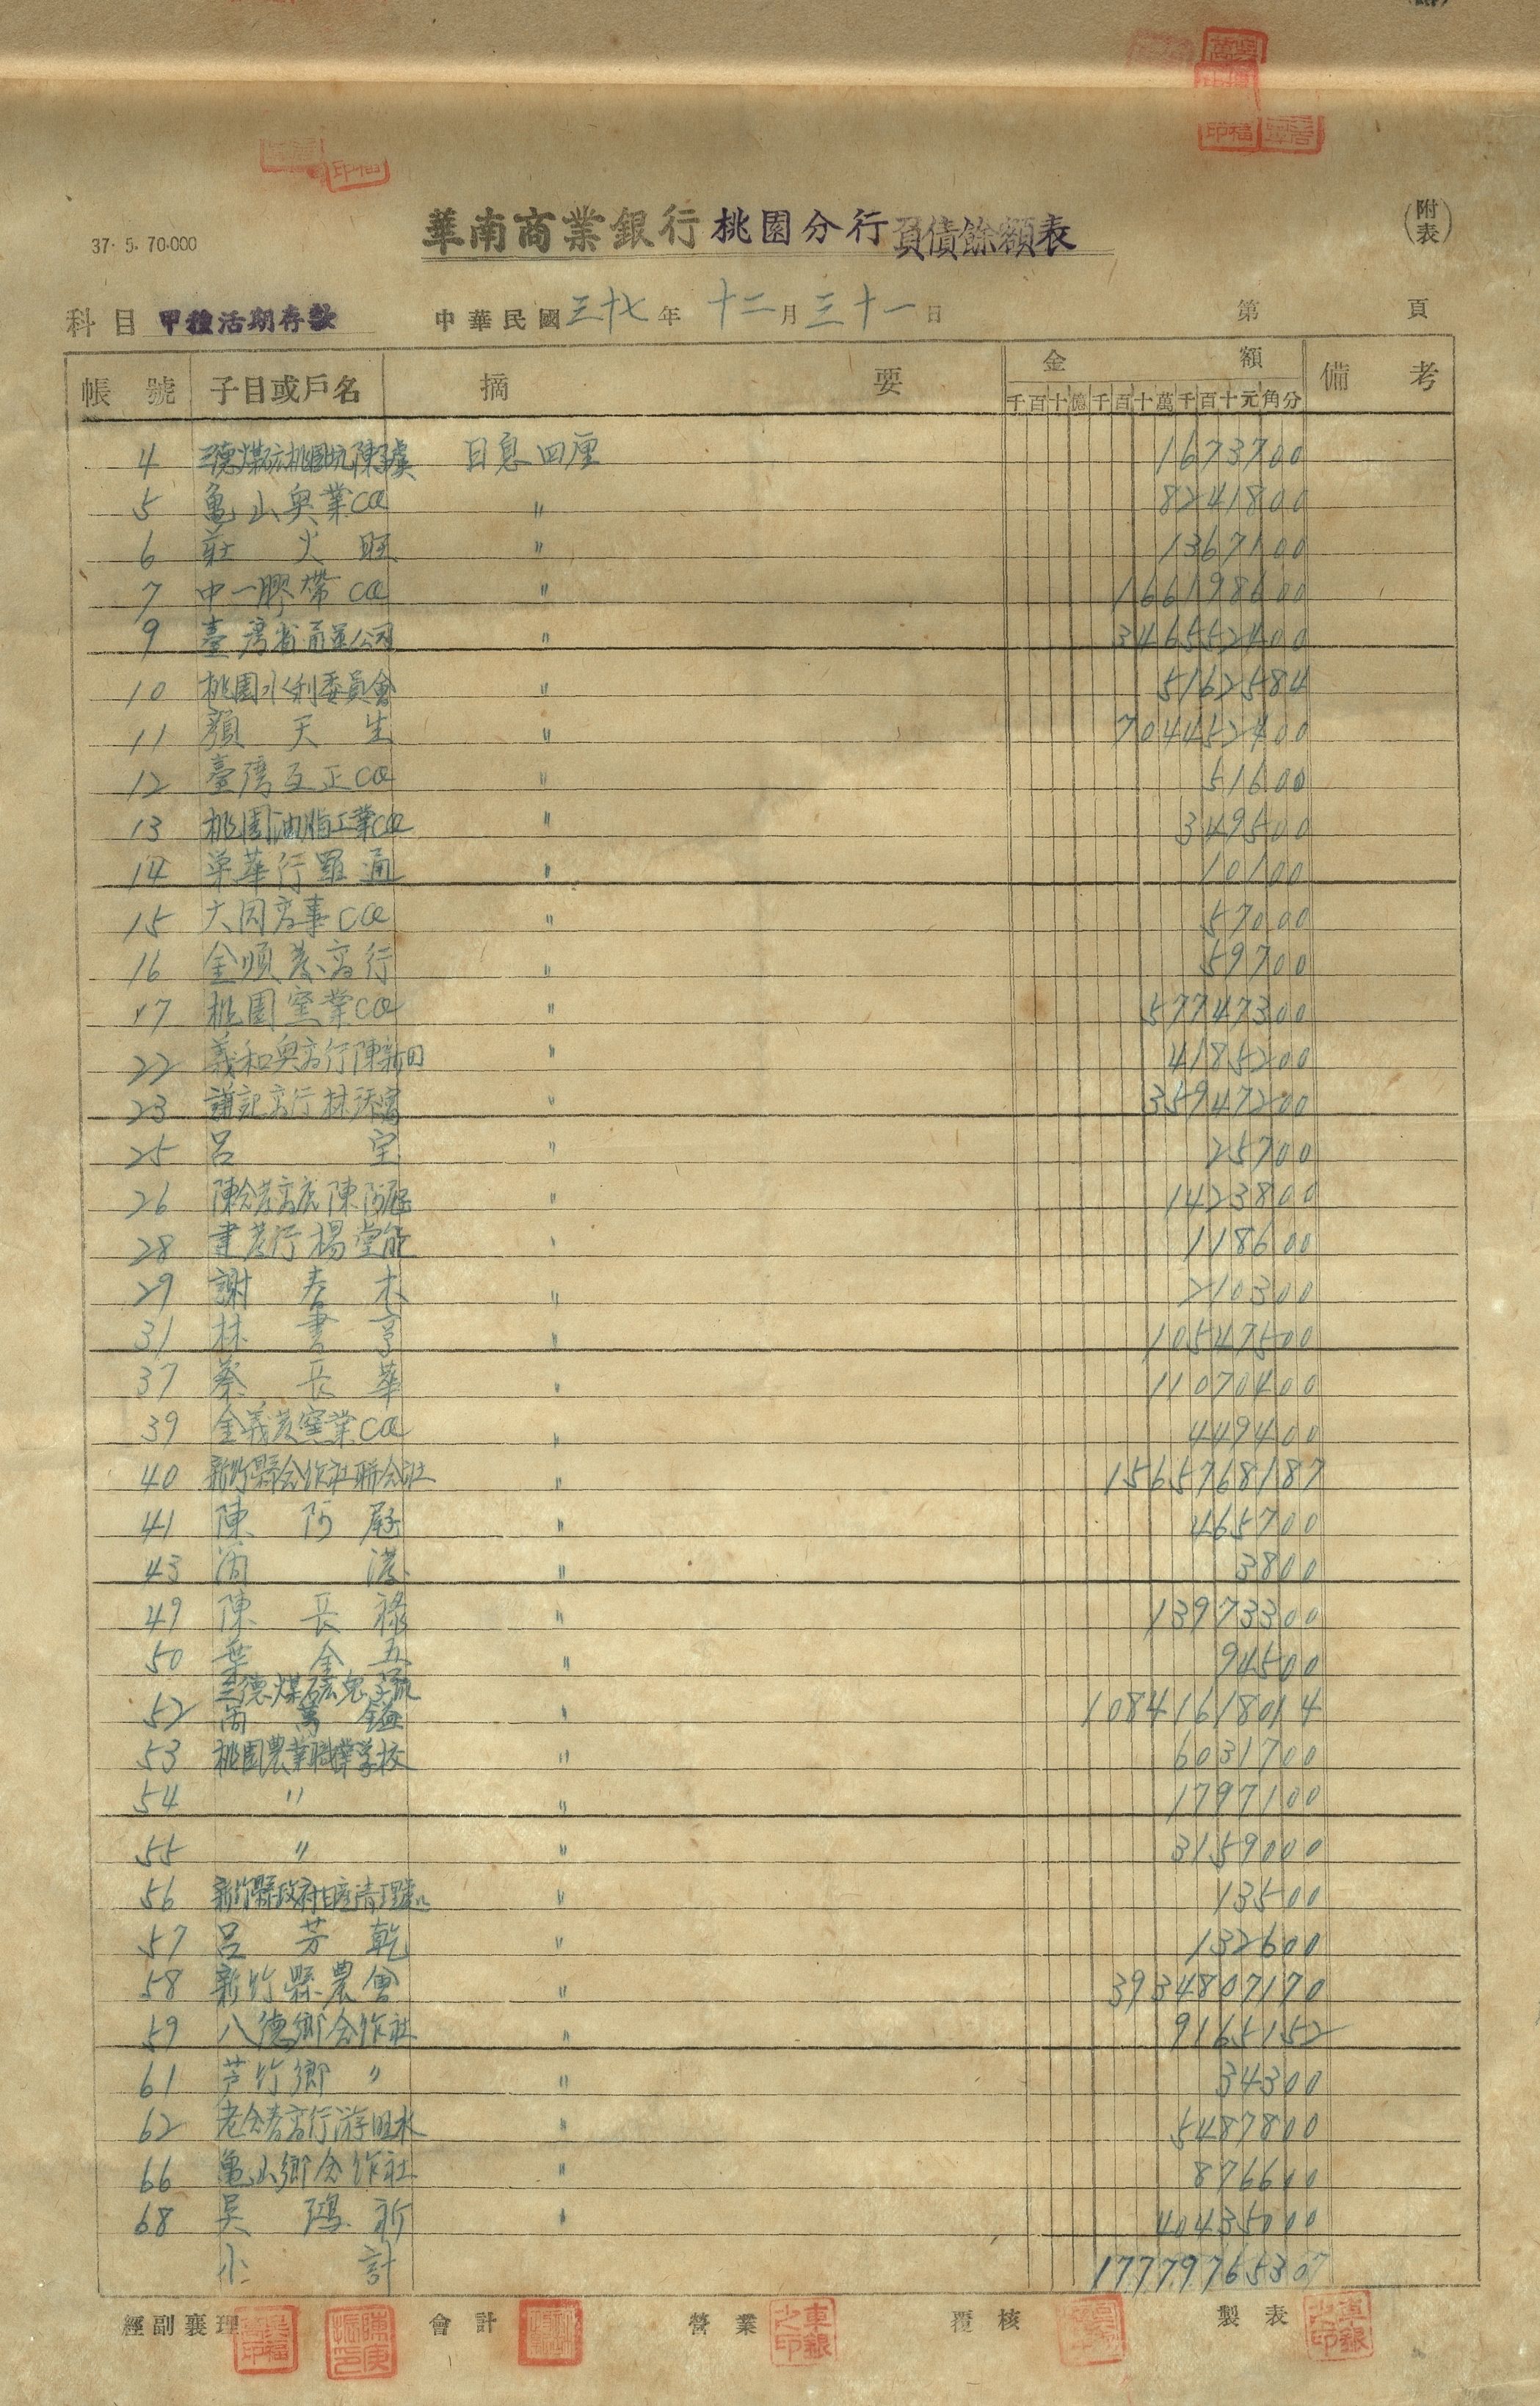 (附表)
37. 5. 70.000
華南商業銀行桃園分行負債餘額表
科目 甲種活期存款 中華民國三十七年 十二月三十一日 第 頁
帳 號 子目或戶名 摘 要 金 額 備 考
千百十億千百十萬千百十元角分
4 三德煤礦桃園坑陳 日息四厘 1673700
5 龜山興業 〃 8241800
6 莊火旺 〃 1367100
7 中一膠帶 〃 166198600
9 臺灣省 公司 〃 346552400
10 桃園水利委員會 〃 5162584
11 顏天生 〃 704452400
12 臺灣互正 〃 51600
13 桃園油脂工業 〃 349500
14 華行羅通 〃 10100
15 大同商事 〃 57000
16 金順 商行 〃 59700
17 桃園窯業 〃 57747300
22 義和興商行陳新 〃 4185200
23 謙記商行林 〃 35947200
25 呂 〃 25700
26 陳 陳阿 〃 1423800
28 行楊 〃 118600
29 謝春木 〃 210300
31 林書亭 〃 10547500
37 蔡長華 〃 11070400
39 金義 窯業 〃 449400
40 新竹縣合作社聯合社 〃 1565768187
41 陳阿 〃 465700
43 〃 3800
49 陳長祿 〃 13973300
50 葉金五 〃 94500
三德煤礦
52 萬鎰 〃 10841618014
53 桃園農業職業學校 〃 6031700
54 〃 〃 1797100
55 〃 〃 3159000
56 新竹縣政府日產清理 〃 13500
57 呂芳乾 〃 132600
58 新竹縣農會 〃 3934807170
59 八德鄉合作社 〃 9165152
61 芦竹鄉 〃 〃 34300
62 老 商行游旺水 〃 5487800
66 龜山鄉合作社 〃 876600
68 吳鴻 〃 40435000
小 計 17779765307
經副襄理 會計 營業 覆核 製表